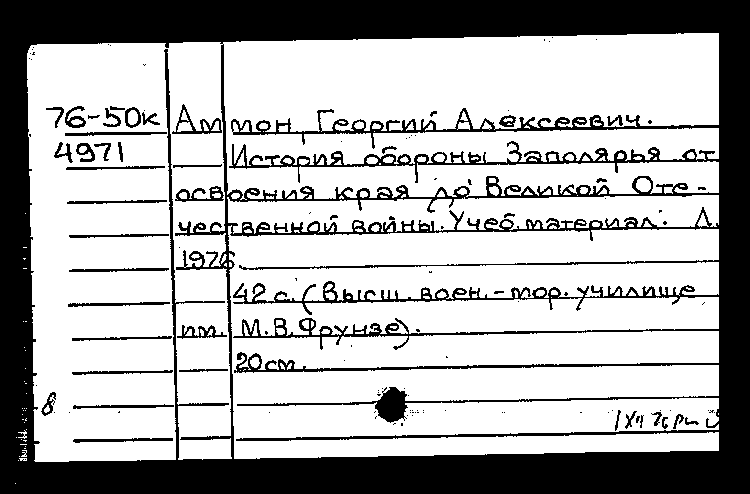 76-50к Аммон, Георгий Алексеевич.
4971 История обороны Заполярья от
освоения края до Великой Оте-
чественной войны. Учеб. материал. Л.
1976.
42 с. (Высш. воен.-мор. училище
им. М.В. Фрунзе).
20 см.
8